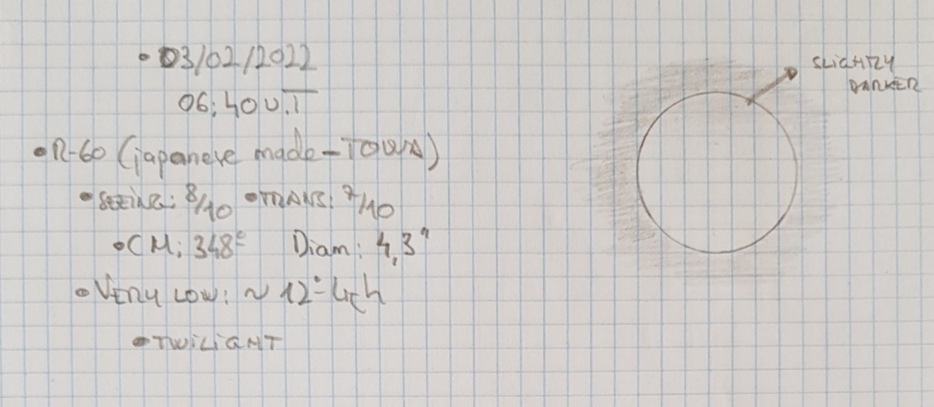 • 03/02/2022
06:40 U.T
• R-60 (japanese made - TOWA)
• SEEING: 8/10 • TRANS: 7/10
• CM: 348º Diam: 4,3"
• VERY LOW: ~ 12º
• TWILIGHT
SLIGHTLY
DARKER